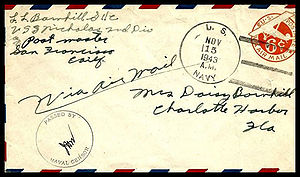 L L Barnhill S 1/c
U S S Nicholas 2nd Div
Post master
San Francisco
Calif.
U. S.
NOV
15
1943
A.M.
NAVY
6¢
AIR MAIL
Via Air Mail
Mrs Daisy Barnhill
Charlotte Harbor
Fla
PASSED BY
NAVAL CENSOR